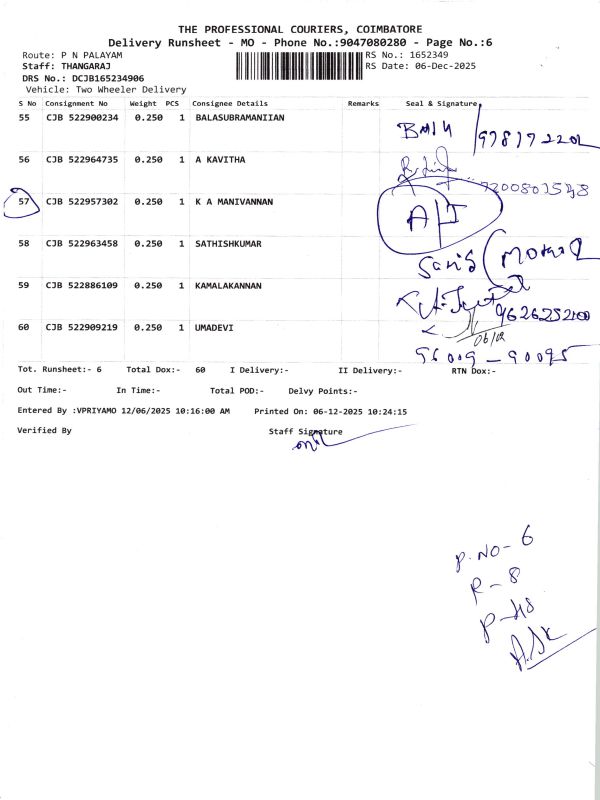 THE PROFESSIONAL COURIERS, COIMBATORE
Delivery Runsheet - MO - Phone No.:9047080280 - Page No.:6
Route: P N PALAYAM RS No.: 1652349
Staff: THANGARAJ RS Date: 06-Dec-2025
DRS No.: DCJB165234906
Vehicle: Two Wheeler Delivery
S No Consignment No Weight PCS Consignee Details Remarks Seal & Signature
55 CJB 522900234 0.250 1 BALASUBRAMANIIAN
56 CJB 522964735 0.250 1 A KAVITHA
57 CJB 522957302 0.250 1 K A MANIVANNAN
58 CJB 522963458 0.250 1 SATHISHKUMAR
59 CJB 522886109 0.250 1 KAMALAKANNAN
9626252100
60 CJB 522909219 0.250 1 UMADEVI
96009-90095
Tot. Runsheet:- 6 Total Dox:- 60 I Delivery:- II Delivery:- RTN Dox:-
Out Time:- In Time:- Total POD:- Delvy Points:-
Entered By :VPRIYAMO 12/06/2025 10:16:00 AM Printed On: 06-12-2025 10:24:15
Verified By Staff Signature
P.NO-6
R-8